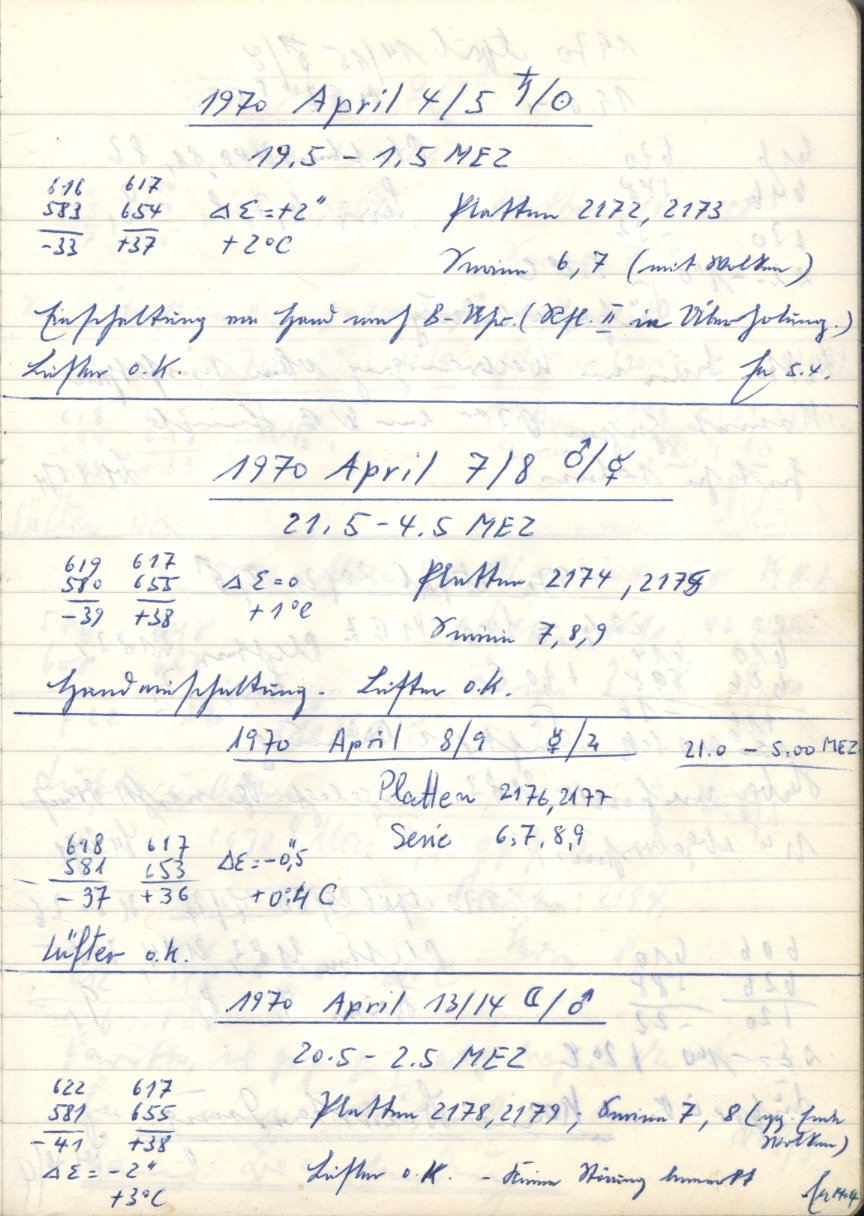 1970 April 4/5 ♄/☉
19.5 – 1.5 MEZ
616 617
583 654 ΔΣ = +2" Platten 2172, 2173
-33 +37 +2°C
Serien 6, 7 (mit Wolken)
Einschaltung von Hand nach B-Uhr. (Rfl. II in Überholung.)
Lüfter o.K. 5.4.
1970 April 7/8 ♂/☿
21.5 – 4.5 MEZ
619 617
580 655 ΔΣ = 0 Platten 2174, 2175
-39 +38 +1°C
Serien 7, 8, 9
Handeinschaltung. Lüfter o.K.
1970 April 8/9 ☿/♃ 21.0 – 5.00 MEZ
Platten 2176, 2177
618 617 Serie 6, 7, 8, 9
581 653 ΔΣ = -0",5
-37 +36 +0.4 C
Lüfter o.K.
1970 April 13/14 ☾/♂
20.5 – 2.5 MEZ
622 617
581 655 Platten 2178, 2179; Serien 7, 8 (gg. Ende
-41 +38 Wolken)
ΔΣ = -2" Lüfter o.K. – Keine Störung bemerkt
+3°C 14.4